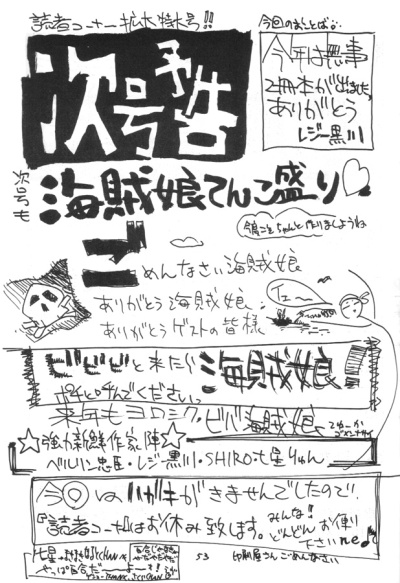 読者コーナー拡大特大号!!
今回のまことば
今年は無事
2冊本が出ました。
ありがとう
レジー黒川
次号予告
次号も
海賊娘てんこ盛り♡
今度こそちゃんと作りましょうね
ごめんなさい海賊娘
ありがとう海賊娘
ありがとうゲストの皆様
ビビビと来たら海賊娘!
と呼んでください。
来年もヨロシク・ビバ海賊娘
☆強力新鮮作家陣☆
ベルリン忠臣・レジー黒川・SHIRO・七星りゅん
今回はハガキがきませんでしたので!
『読者コーナー』はお休み致します。
みんな!!
どんどんお便り
下さいne♪
53
印刷屋さんごめんなさい